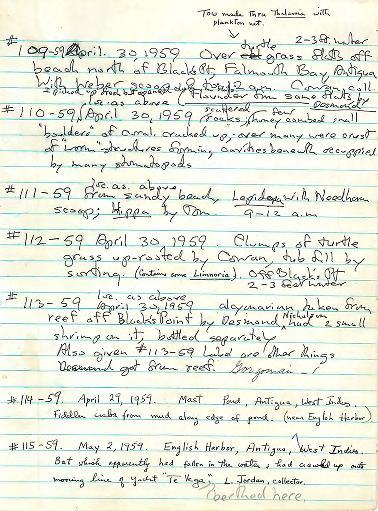 Tow made thru Thalassia with
plankton net.
2-3 feet water
#109-59 April 30, 1959 Over turtle grass flats off
beach north of Blacks Pt, Falmouth Bay, Antigua
With Weber scoop & 12 a.m. Conran, coll.
loc. as above (flounder from same flats
Desmond)
#110-59, April 30, 1959 scattered few rocks, honey combed small
"boulders" of coral, cracked up; over many were crust
of "worm" structures forming cavities beneath occupied
by many stomatopods
loc. as above,
#111-59 from sandy beach, Lepidops with Needham
scoop; Hippa by Tom. 9-12 a.m
#112-59 April 30, 1959. Clumps of turtle
grass up-rooted by Conran, tub full by
sorting. (Contains some Limnoria). Off Blacks Pt
2-3 feet water
loc. as above
#113-59 April 30, 1959 alcyonarian taken from
reef off Blacks Point by Desmond Nicholson had 2 small
shrimp on it, bottled separately
Also given #113-59 Label are other things
Desmond got from reef. Gorgonian - !
#114-59. April 29, 1959. Mast Pond, Antigua, West Indies.
Fiddler crabs from mud along edge of pond. (near English Harbor).
#115-59. May 2, 1959. English Harbor, Antigua, West Indies.
Bat which apparently had fallen in the water, & had crawled up onto
mooring line of yacht "Te Vega"; L. Jordan, collector.